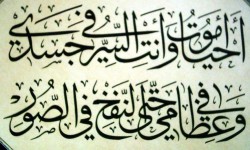 أحيا أموت وأنت السر في جسدي
وفي عظامي حتى النفخ في الصور